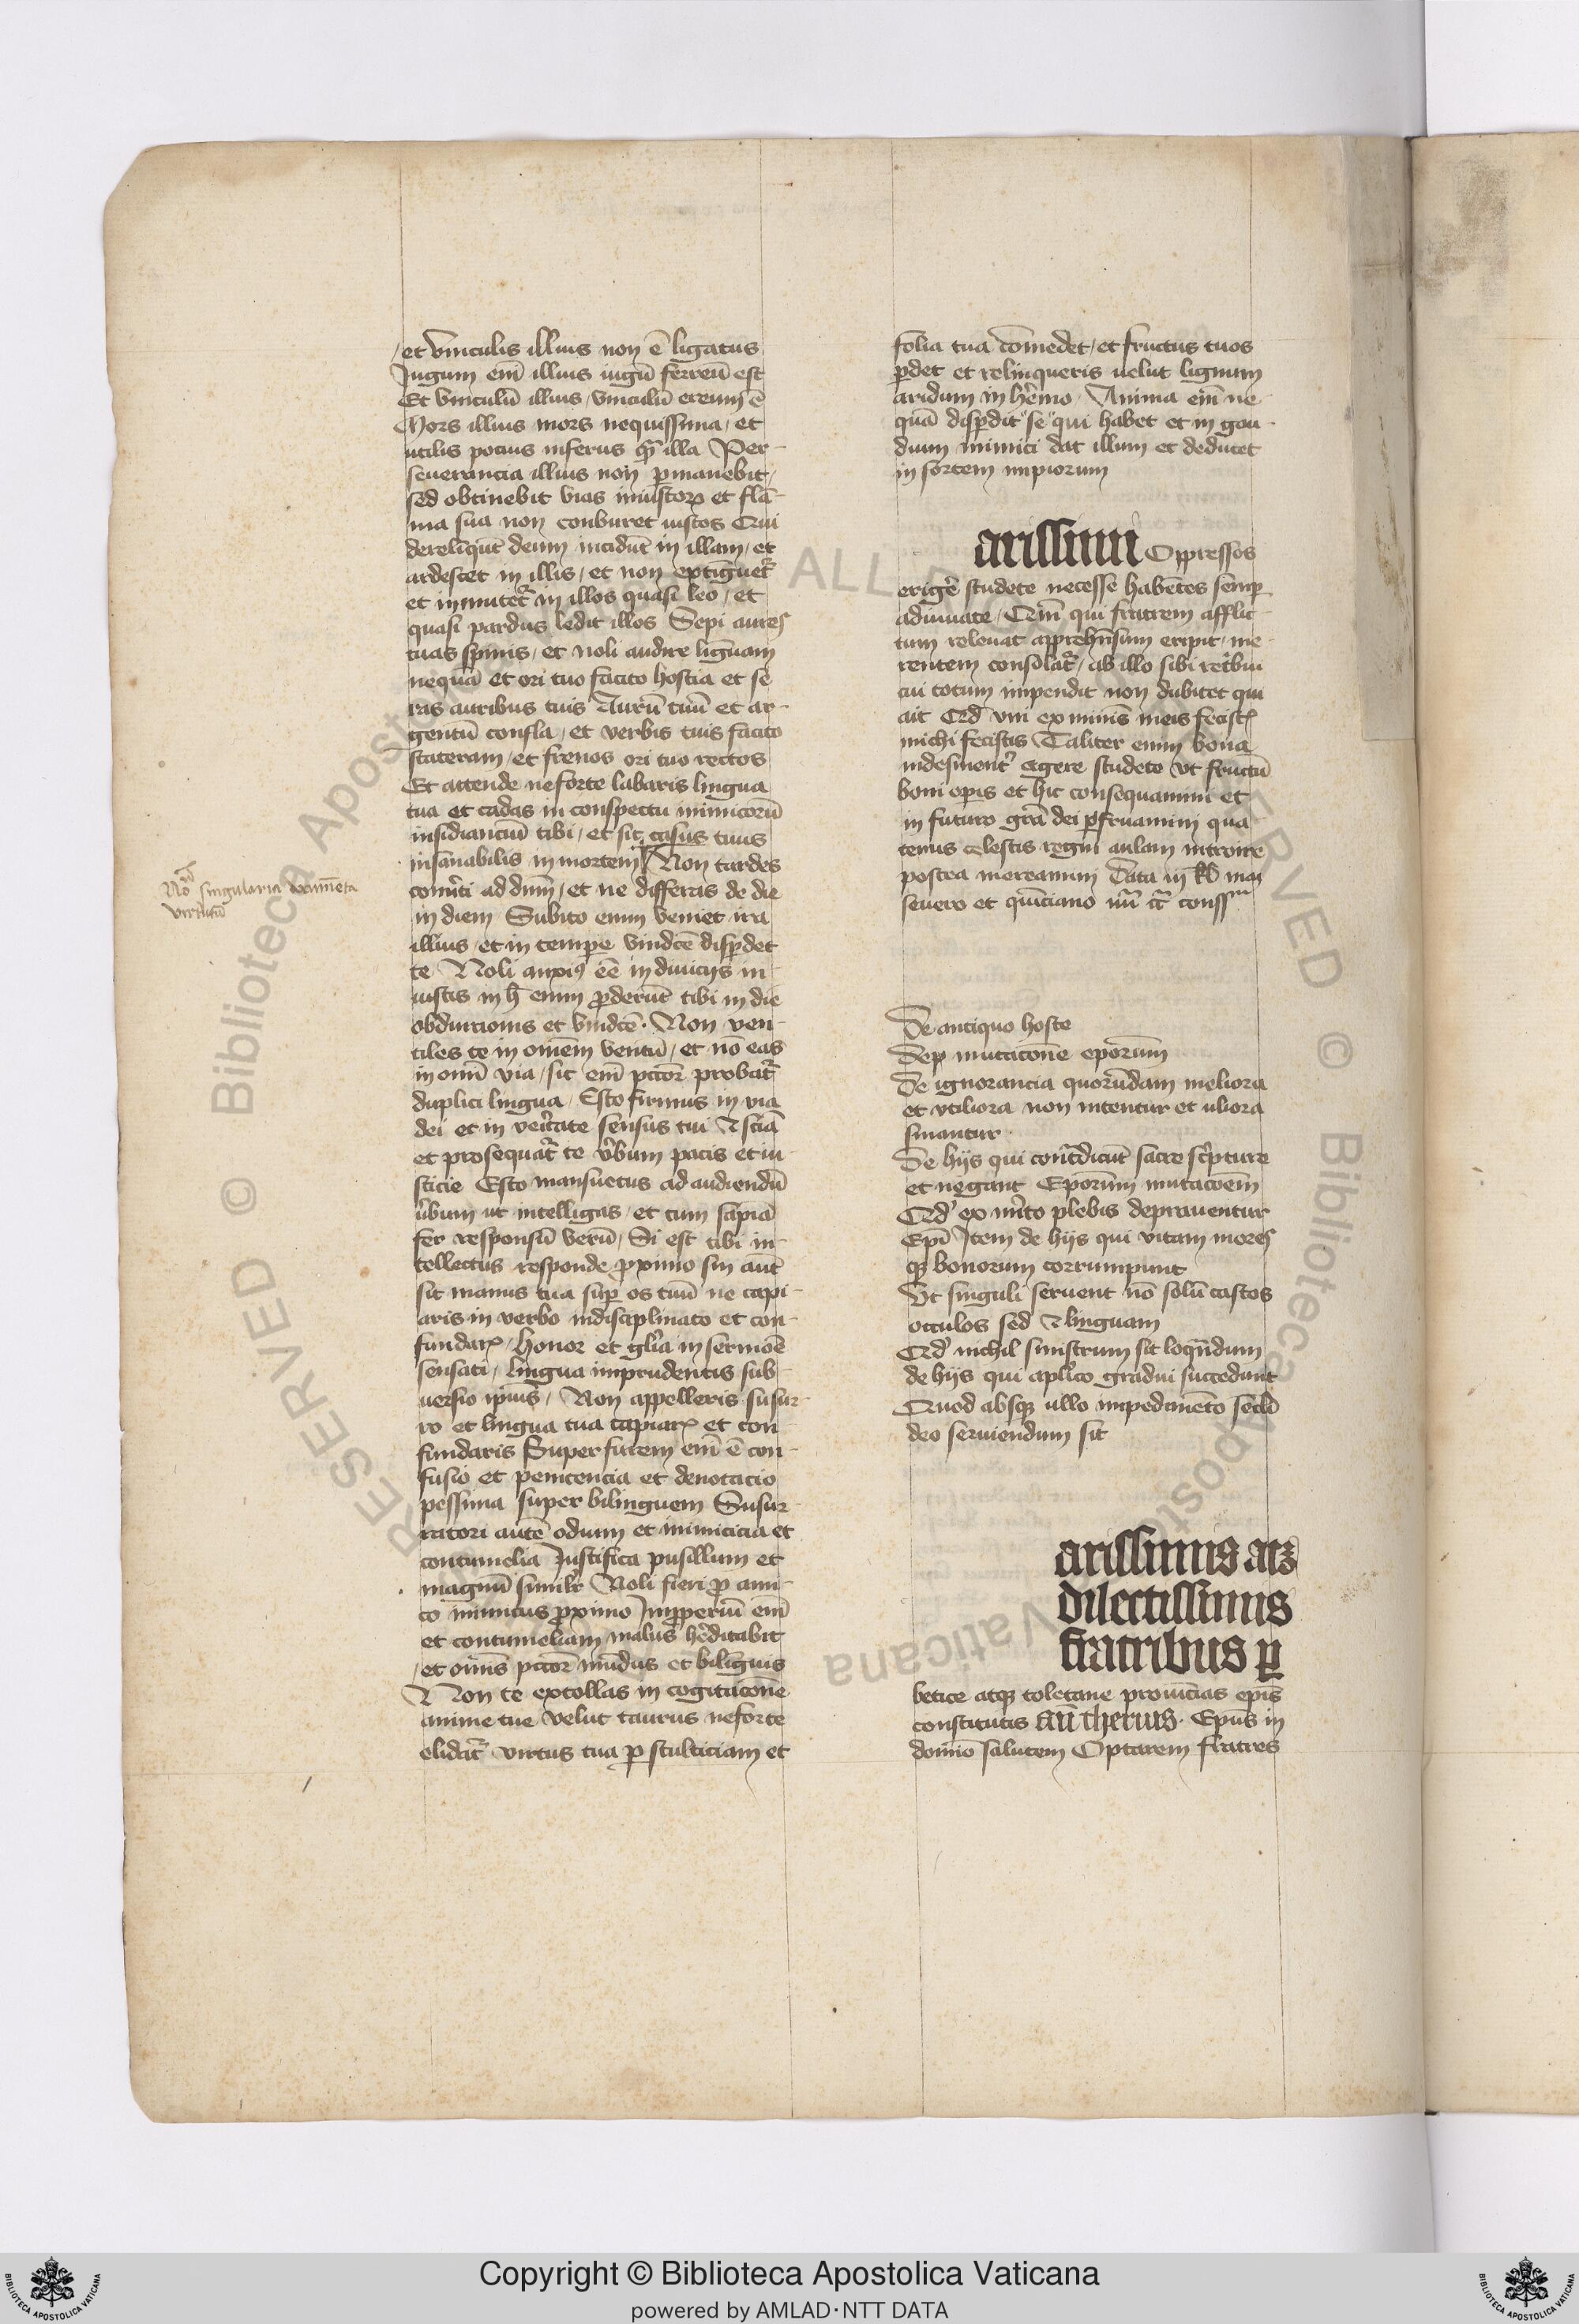 et vinculis illius non ē ligatus
Jugum em̄ illius iugū ferreū est
Et vinculū illius, vinculū ereum ē
Mors illius mors nequissima, et
utilis pocius inferus qm̄ illa Per-
severancia illius non ꝑmanebit,
sed obtinebit vias iniustoꝝ et flā-
ma sua non conburet iustos Qui
derelīqūt deum incidūt in illam, et
ardescet in illis, et non extīguet᷑
et inmitet᷑ in illos quasi leo, et
quasi pardus ledit illos Sepi aures
tuas spinis, et noli audire liguam
nequā et ori tuo facito hostia et se
ras auribus tuis Aurū tuū et ar-
gentū confla, et verbis tuis facito
stateram, et frenos ori tuo rectos
Et attende neforte labaris lingua
tua et cadas in conspectu inimicorū
insidianciū tibi, et sit casus tuus
insanabilis in mortem Non tardes
conv̄ti ad dnm̄, et ne differas de die
in diem Subito enim veniet ira
illius, et in tempe vindcē disꝑdet
te Noli anxiꝰ eē in diviciis in-
iustis in h̄ enim ꝓderūt tibi in die
obductionis et vindcē. Non ven-
tiles te in omēm ventū, et nō eas
in omī via, sic em̄ pctor̄ probat᷑
duplici lingua, Esto firmus in via
dei et in vēitate sensus tui ⁊ scīa
et prosequat᷑ te v̄bum pacis et iu-
sticie Esto mansuetus ad audiendū
v̄bum ut intelligas, et cum sapīa
fer responsū verū, Si est tibi in-
tellectus responde ꝓximo sin aūt
sit manus tua suꝑ os tuū ne capi-
aris in verbo indisciplinato et con-
fundarꝭ, honor et glīa in sermōē
sensati, lingua imprudentis sub-
versio ipīus, Non appelleris susur-
ro et lingua tua capiarꝭ et con-
fundaris Super furem em̄ ē con-
fusio et penitencia et denotatio
pessima super bilinguem Susur-
ratori autē odium et inimicicia et
contumelia Justifica pusillum et
magnū similr̄ Noli fieri ꝓ ami-
co inimicus ꝓximo Inꝓperiū em̄
et contumeliam malus hēditabit
et omīs pctor̄ invidus et bilīguis
Non te extollas in cogitacōne
anime tue velut taurus neforte
elidat᷑ virtus tua ꝑ stulticiam et
No singularia documēta
virtutū
folia tua cōmedet, et fructus tuos
ꝑdet et relinqueris velut lignum
aridum in hēmo, Anima em̄ ne-
quā disꝑdit se qui habet et in gau-
dium inimici dat illum et deducet
in sortem impiorum
arissimi Oppressos
erigēr studete necesse habētes semꝑ
adiuvate, Qm̄ qui fratrem afflic-
tum relevat apprehn̄sum eripit, me-
rentem consolat᷑, ab illo sibi ret̄bui
cui totum impendit non dubitet qui
ait Qd uni ex minīs meis fecistꝭ
michi fecistis Taliter enim bona
indesinent᷑ agere studete ut fructū
boni opis et hic consequamini et
in futuro grā dei ꝑfruamini qua-
tenus celestis regni aulam introire
postea mereamini Data iii kl̄ maii
severo et quīciano
De antiquo hoste
Deꝑ mutacōne epor̄um
De ignorancia quorūdam meliora
et utiliora non intentur et uliora
sinantur
De hiis qui contr̄dicūt sacre scpture
et negant Epor̄um mutacoēm
Qd ex mīto plebis depraventur
Epī Item de hiis qui vitam mores
qꝫ bonorum corrumpunt
Ut singuli servent nō solū castos
occulos sed ⁊ linguam
Qd nichil sinistrum sit loqn̄dum
de hiis qui aplīco gradui succedunt
Quod absqꝫ ullo impedimēto secli
deo serviendum sit
arissimis atqꝫ
dilectissimis
fratribus ꝑ
betice atqꝫ toletane provīcias epīs
constitutis an̄therus. Epūs in
domīo salutem Optarem fratres
Copyright © Biblioteca Apostolica Vaticana
powered by AMLAD·NTT DATA